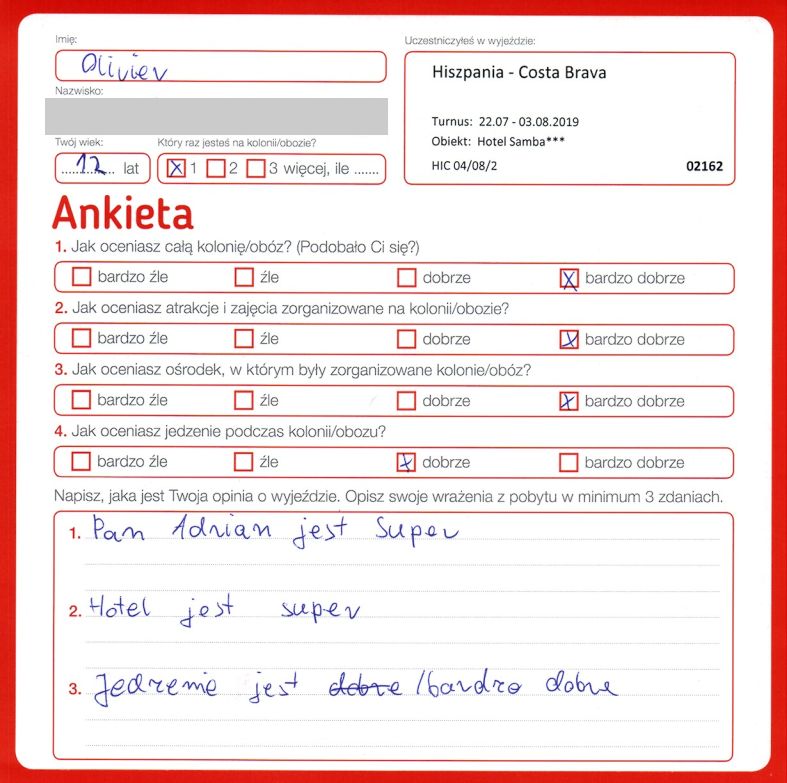 Imię:
Olivier
Nazwisko:
Twój wiek:
12 lat
Który raz jesteś na kolonii/obozie?
1 2 3 więcej, ile .......
Uczestniczyłeś w wyjeździe:
Hiszpania - Costa Brava
Turnus: 22.07 - 03.08.2019
Obiekt: Hotel Samba***
HIC 04/08/2 02162
Ankieta
1. Jak oceniasz całą kolonię/obóz? (Podobało Ci się?)
bardzo źle źle dobrze bardzo dobrze
2. Jak oceniasz atrakcje i zajęcia zorganizowane na kolonii/obozie?
bardzo źle źle dobrze bardzo dobrze
3. Jak oceniasz ośrodek, w którym były zorganizowane kolonie/obóz?
bardzo źle źle dobrze bardzo dobrze
4. Jak oceniasz jedzenie podczas kolonii/obozu?
bardzo źle źle dobrze bardzo dobrze
Napisz, jaka jest Twoja opinia o wyjeździe. Opisz swoje wrażenia z pobytu w minimum 3 zdaniach.
1. Pan Adrian jest Super
2. Hotel jest super
3. Jedzenie jest dobre /bardzo dobre